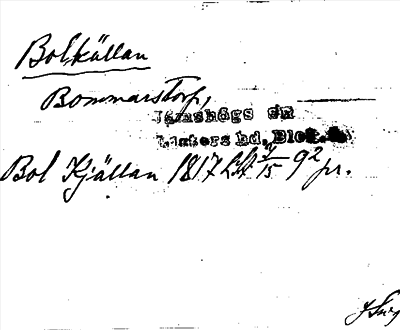 Bolkällan
Bommarstorp,
Jämshögs sn
Listers hd, Blek.
Bol Kjällan 1817 15 92 pr.